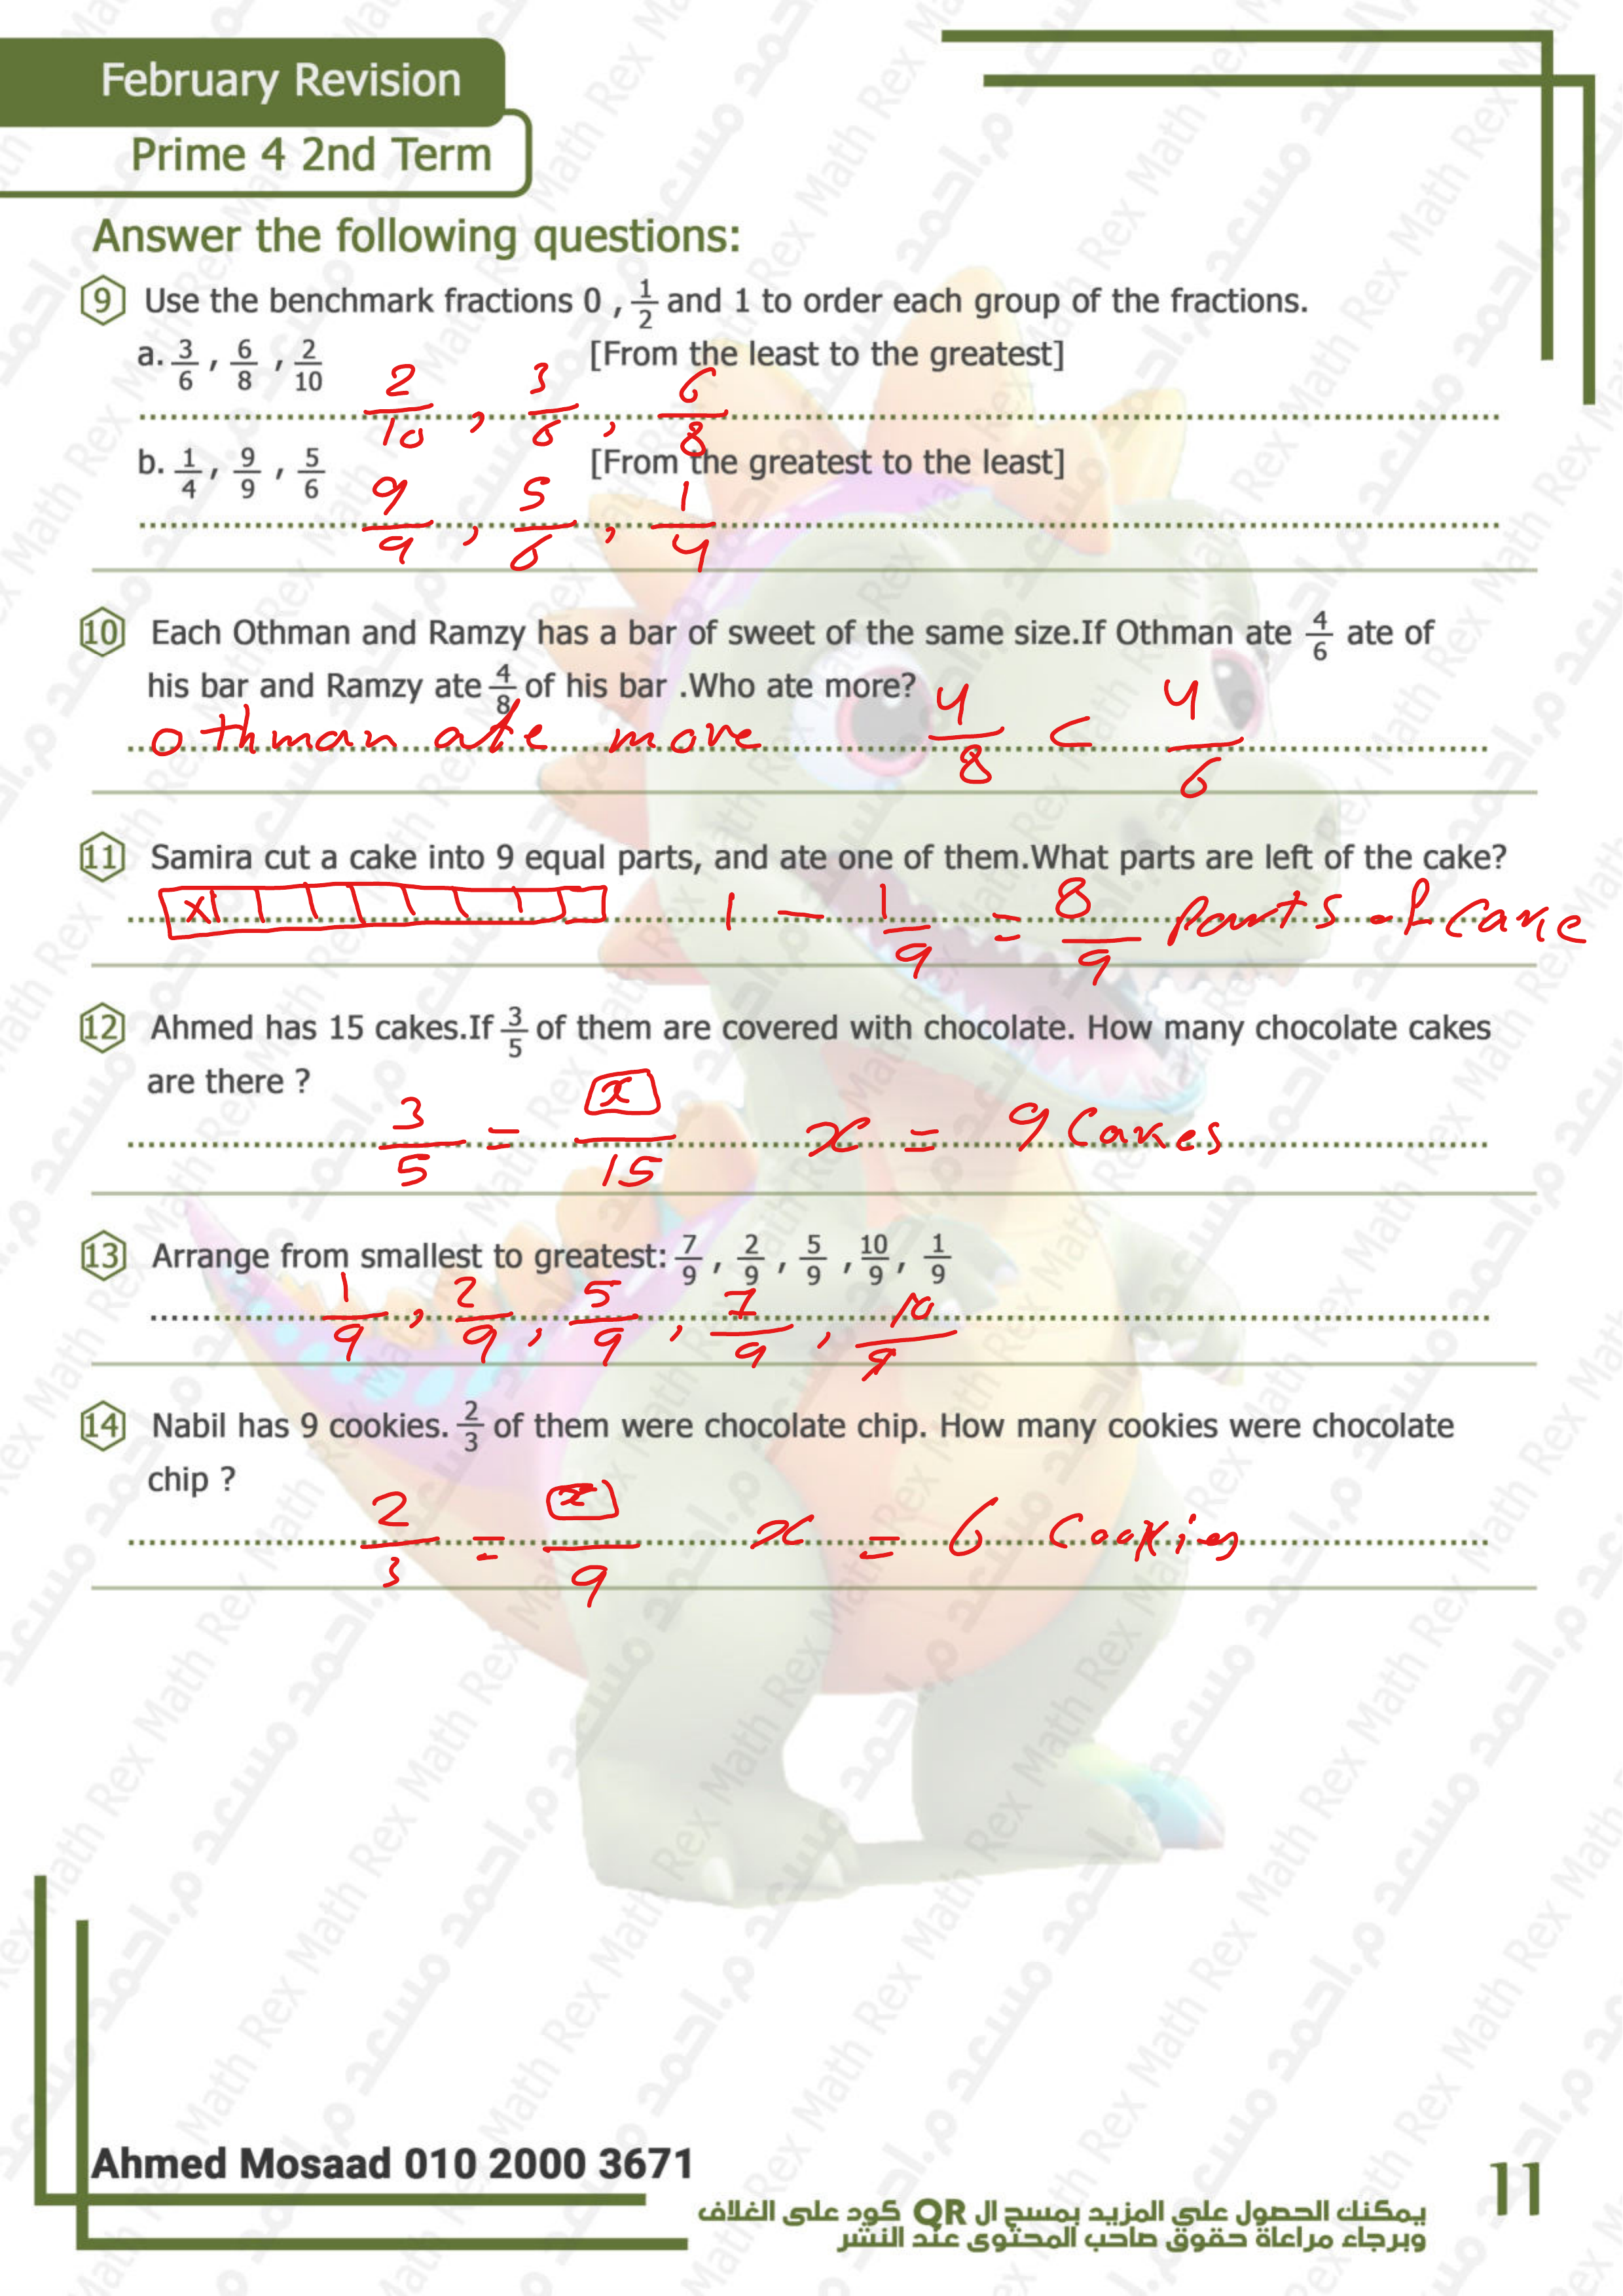 February Revision
Prime 4 2nd Term
Answer the following questions:
9 Use the benchmark fractions 0 , 1/2 and 1 to order each group of the fractions.
a. 3/6 , 6/8 , 2/10 [From the least to the greatest]
2/10 , 3/6 , 6/8
b. 1/4 , 9/9 , 5/6 [From the greatest to the least]
9/9 , 5/6 , 1/4
10 Each Othman and Ramzy has a bar of sweet of the same size.If Othman ate 4/6 ate of
his bar and Ramzy ate 4/8 of his bar .Who ate more?
othman ate more 4/8 < 4/6
11 Samira cut a cake into 9 equal parts, and ate one of them.What parts are left of the cake?
x 1 - 1/9 = 8/9 parts of cake
12 Ahmed has 15 cakes.If 3/5 of them are covered with chocolate. How many chocolate cakes
are there ?
3/5 = x/15 x = 9 Cakes
13 Arrange from smallest to greatest: 7/9 , 2/9 , 5/9 , 10/9 , 1/9
1/9 , 2/9 , 5/9 , 7/9 , 10/9
14 Nabil has 9 cookies. 2/3 of them were chocolate chip. How many cookies were chocolate
chip ?
2/3 = x/9 x = 6 Cookies
Ahmed Mosaad 010 2000 3671
11
يمكنك الحصول على المزيد بمسح ال QR كود على الغلاف
وبرجاء مراعاة حقوق صاحب المحتوى عند النشر
Math Rex م.احمد مسعد